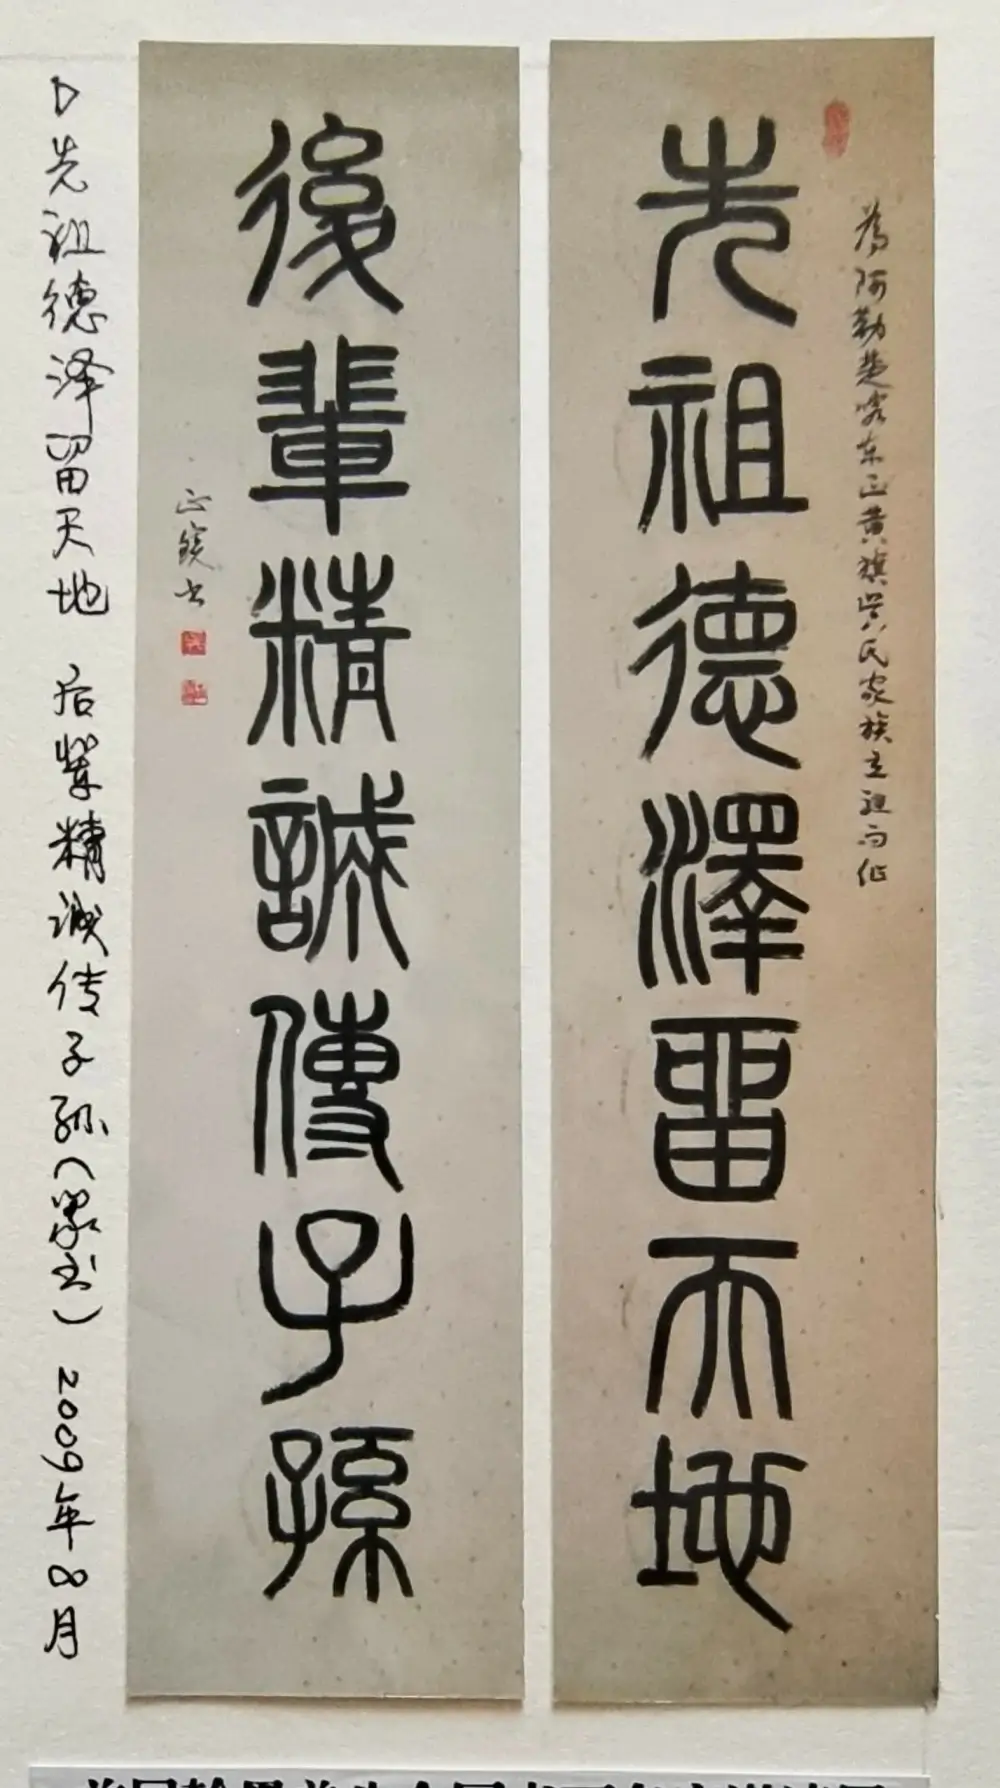 为阿勒楚喀东正黄旗吴氏家族立祖而作
先祖德澤留天地
後輩精誠傳子孫
正镜书
先祖德泽留天地 后辈精诚传子孙（篆书） 2009年8月